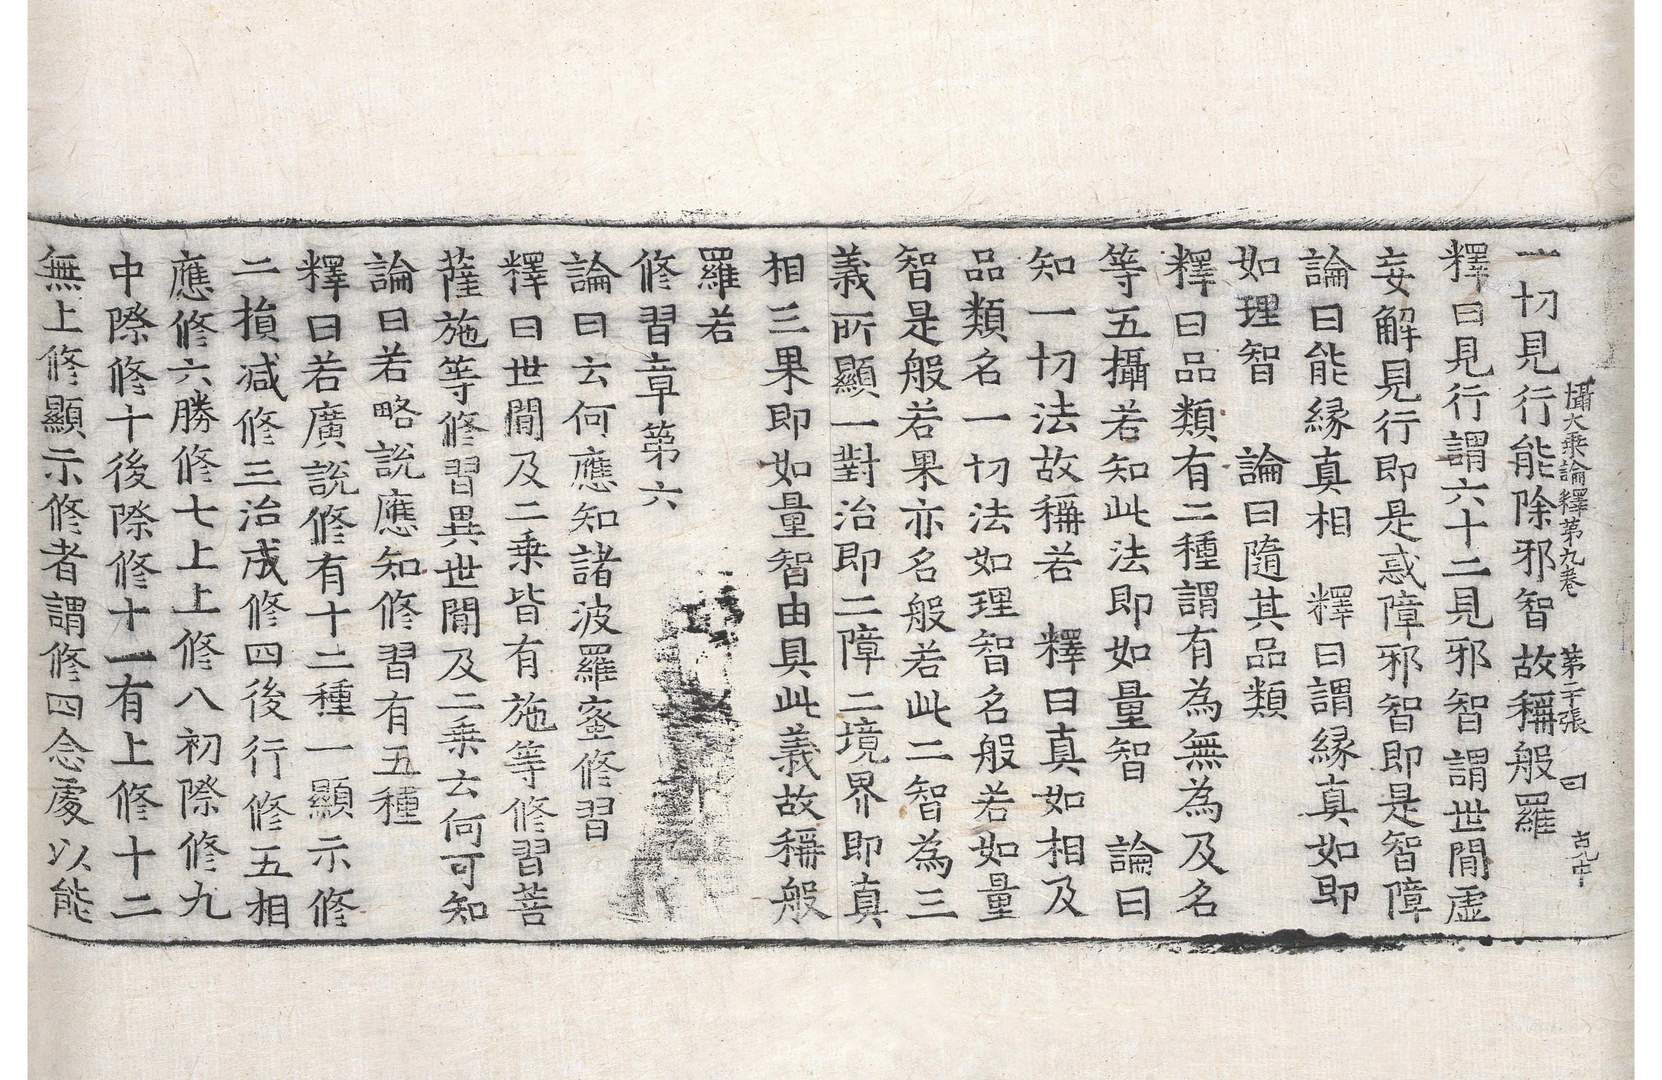 攝大乘論釋第九卷　第十張　曰
一切見行能除邪智故稱般羅
釋曰見行謂六十二見邪智謂世間虛
妄解見行即是惑障邪智即是智障
論曰能緣真相　釋曰謂緣真如即
如理智　論曰隨其品類
釋曰品類有二種謂有為無為及名
等五攝若知此法即如量智　論曰
知一切法故稱若　釋曰真如相及
品類名一切法如理智名般若如量
智是般若果亦名般若此二智為三
義所顯一對治即二障二境界即真
相三果即如量智由具此義故稱般
羅若
修習章第六
論曰云何應知諸波羅蜜修習
釋曰世間及二乘皆有施等修習菩
薩施等修習異世間及二乘云何可知
論曰若略說應知修習有五種
釋曰若廣說修有十二種一顯示修
二損減修三治成修四後行修五相
應修六勝修七上上修八初際修九
中際修十後際修十一有上修十二
無上修顯示修者謂修四念處以能